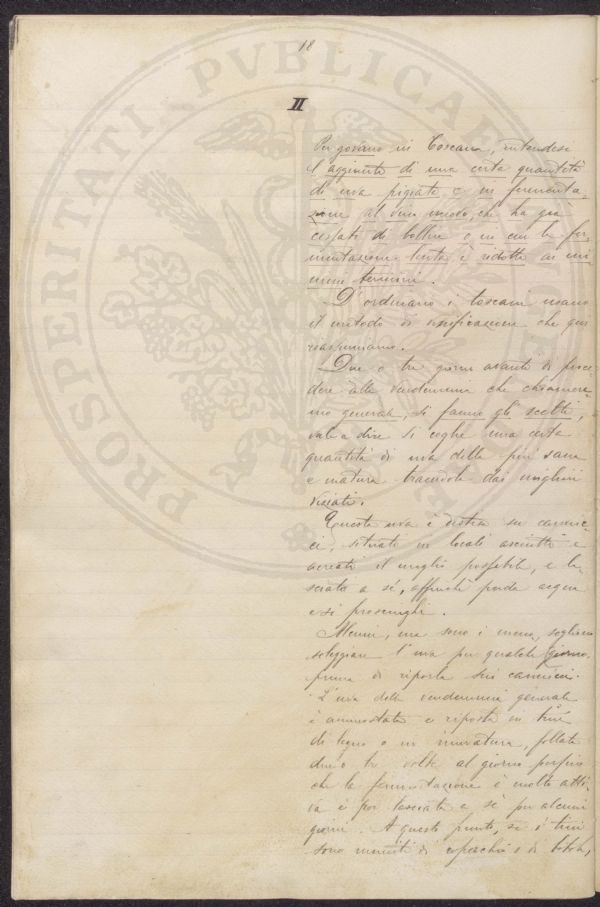 18
II
Per governo in Toscana, intendesi
l'aggiunta di una certa quantità
di uva pigiata e in fermenta-
zione al vino nuovo, che ha già
cessato di bollire o in cui la fer-
mentazione lenta è ridotta ai mi
nimi termini.
D'ordinario i toscani usano
il metodo di vinificazione che qui
riassumiamo.
Due o tre giorni avanti di proce-
dere alla vendemmia che chiamere
mo generale, si fanno gli scelti,
vale a dire si coglie una certa
quantità di uva della più sana
e matura traendola dai migliori
viziati.
Questa uva è distesa su cannic
ci, situati in locali asciutti e
aereati il meglio possibile, e la
sciata a sé, affinché perda acqua
e si prosciughi.
Alcuni, ma sono i meno, sogliono
soleggiare l'uva per qualche giorno,
prima di riporla sui cannicci.
L'uva della vendemmia generale
è ammostata e riposta in tini
di legno o in muratura, follata
due o tre volte al giorno perfino
che la fermentazione è molto atti-
va è poi lasciata a sé per alcuni
giorni. A questo punto, se i tini
sono muniti di coperchio o di botola,
PROSPERITATI PVBLICAE